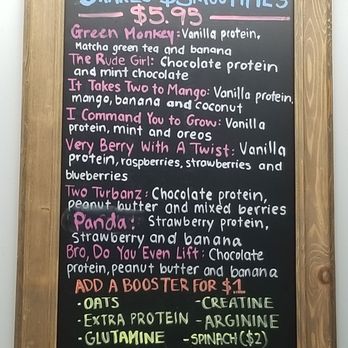 SHAKES & SMOOTHIES
$5.95
Green Monkey: Vanilla protein,
Matcha green tea and banana
The Rude Girl: Chocolate protein
and mint chocolate
It Takes Two to Mango: Vanilla protein,
mango, banana and coconut
I Command You to Grow: Vanilla
protein, mint and oreos
Very Berry With A Twist: Vanilla
protein, raspberries, strawberries and
blueberries
Two Turbanz: Chocolate protein,
peanut butter and mixed berries
Panda: Strawberry protein,
strawberry and banana
Bro, Do You Even Lift: Chocolate
protein, peanut butter and banana
ADD A BOOSTER FOR $1
• OATS - CREATINE
• EXTRA PROTEIN • ARGININE
• GLUTAMINE - SPINACH ($2)